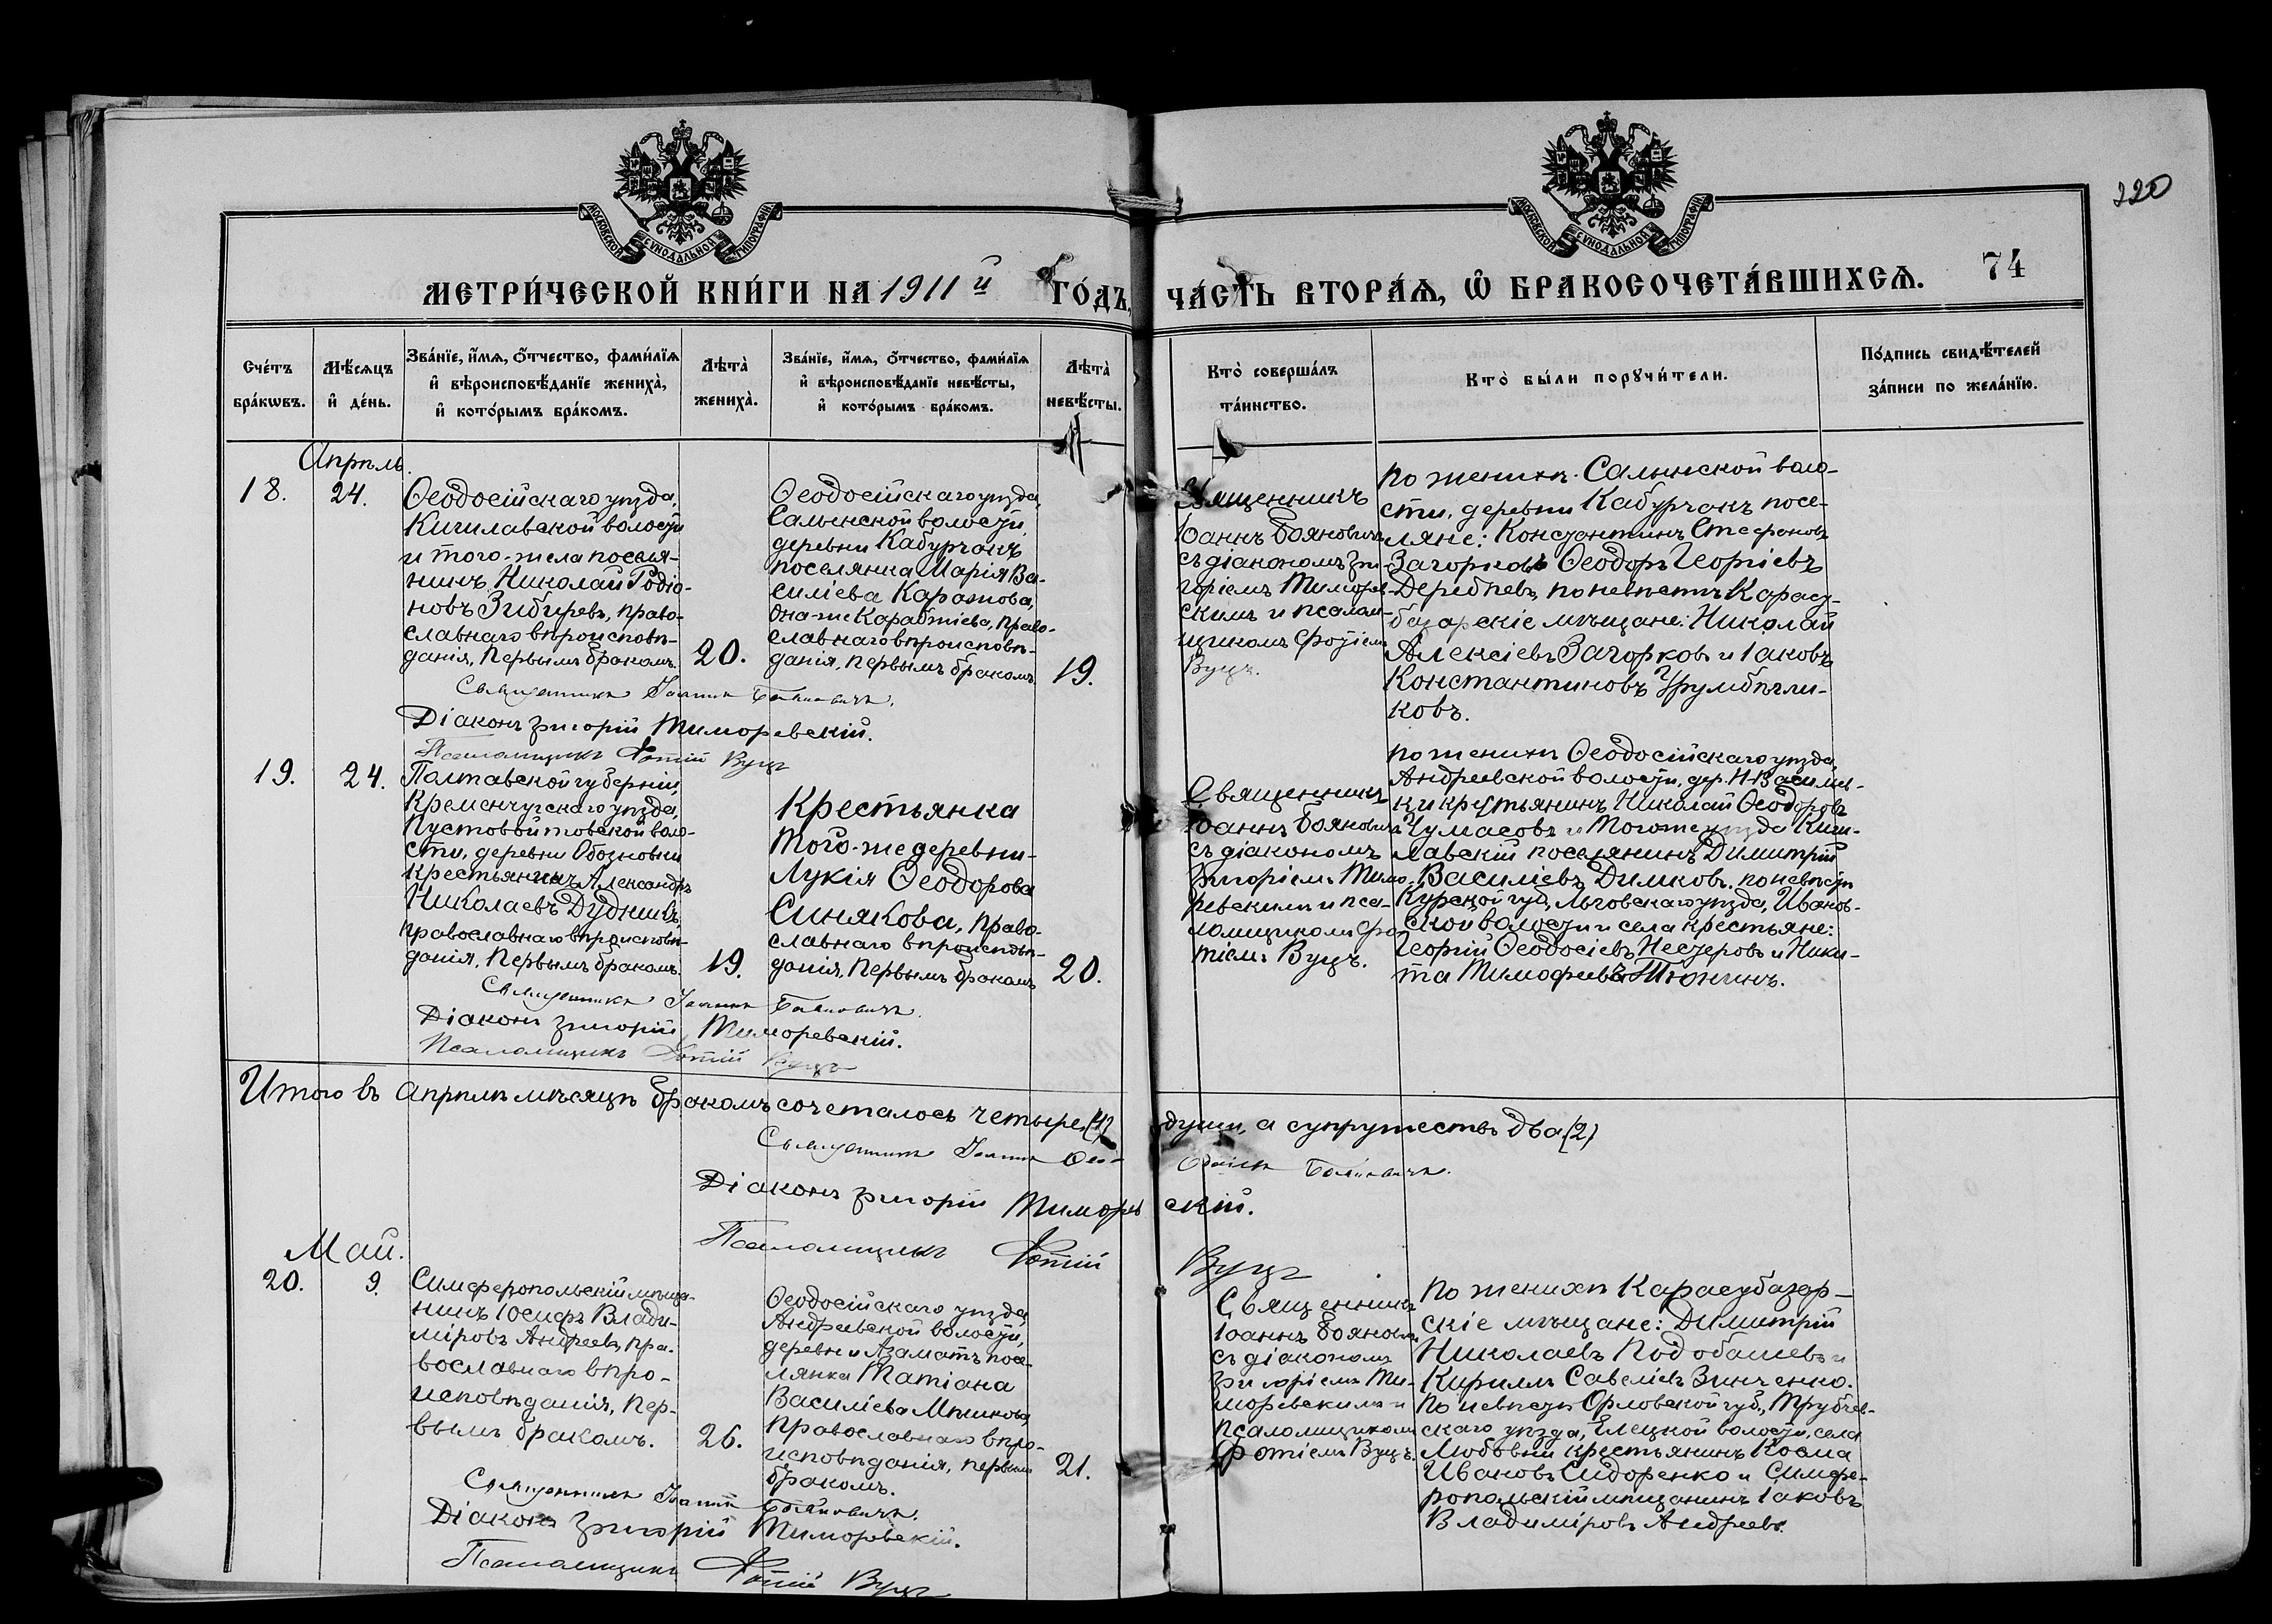 220
МОСКОВСКОЙ СѴНОДАЛЬНОЙ ТИПОГРАФІИ
МОСКОВСКОЙ СѴНОДАЛЬНОЙ ТИПОГРАФІИ
МЕТРИ́ЧЕСКОЙ КНИ́ГИ НА 1911й ГО́ДЪ, ЧА́СТЬ ВТОРА́Ѧ, Ѡ БРАКОСОЧЕТА́ВШИХСѦ. 74
Сче́тъ
бра́кѡвъ.
Мѣ́сѧцъ
и҆ де́нь.
Зва́нїе, и҆́мѧ, ѻ҆́тчество, фами́лїѧ
и҆ вѣроисповѣ́данїе жениха̀,
и҆ кото́рымъ бра́комъ.
Лѣта̀
жениха̀.
Зва́нїе, и҆́мѧ, ѻ҆́тчество, фами́лїѧ
и҆ вѣроисповѣ́данїе невѣ́сты,
и҆ кото́рымъ бра́комъ.
Лѣта̀
невѣ́сты.
Кто̀ соверша́лъ
та́инство.
Кто̀ бы́ли порꙋчи́тели.
По́дпись свидѣ́телей
за́писи по жела́нїю.
Апрѣль.
18.
24.
Ѳеодосійскаго уѣзда,
Кишлавской волости
и того-же села поселя-
нинъ Николай Родіо-
новъ Зибиревъ, право-
славнаго вѣроисповѣ-
данія, первымъ бракомъ.
20.
Ѳеодосійскаго уѣзда,
Салынской волости,
деревни Кабурчакъ
поселянка Марія Ва-
силіева Каразнова,
она-же Карабтіева, право-
славнаго вѣроисповѣ-
данія, первымъ бракомъ
19.
Священникъ
Іоаннъ Бояновичъ
съ діакономъ Гри-
горіемъ Тиморев-
скимъ и псалом-
щикомъ Фотіемъ
Вуцъ.
По женихѣ: Салынской воло-
сти, деревни Кабурчакъ посе-
ляне: Константинъ Стефановъ
Загорковъ Ѳеодоръ Георгіевъ
Дерибѣевъ, по невѣстѣ Карасу-
базарскіе мѣщане: Николай
Алексіевъ Загорковъ и Іаковъ
Константиновъ Урумбѣгли-
ковъ.
Священникъ Іоаннъ Бояновичъ.
Діаконъ Григорій Тиморевскій.
Псаломщикъ Фотій Вуцъ
19.
24.
Полтавской губерніи,
Кременчугскаго уѣзда,
Пустовойтовской воло-
сти, деревни Обозновки
крестьянинъ Александръ
Николаевъ Дудникъ,
православнаго вѣроисповѣ-
данія, первымъ бракомъ.
19.
Крестьянка
того-же деревни-
Лукія Ѳеодорова
Синякова, право-
славнаго вѣроисповѣ-
данія, первымъ бракомъ
20.
Священникъ
Іоаннъ Бояновичъ
съ діакономъ
Григоріемъ Тимо-
ревскимъ и пса-
ломщикомъ Фо-
тіемъ Вуцъ.
По женихѣ Ѳеодосійскаго уѣзда,
Андреевской волости, дер. Н-Василь-
ки крестьянинъ Николай Ѳеодоровъ
Чумасовъ и того же уѣзда Киш-
лавскій поселянинъ Димитрій
Василіевъ Димковъ. По невѣстѣ
Курской губ, Льговскаго уѣзда, Иванов-
ской волости и села крестьяне:
Георгій Ѳеодосіевъ Нестеровъ и Ники-
та Тимофеевъ Тюнинъ.
Священникъ Іоаннъ Бояновичъ.
Діаконъ Григорій Тиморевскій.
Псаломщикъ Фотій Вуцъ
Итого въ Апрѣлѣ мѣсяцѣ бракомъ сочеталось четыре (4) души, а супружествъ два (2)
Священникъ Іоаннъ Бояновичъ.
Діаконъ Григорій Тиморевскій.
Псаломщикъ Фотій Вуцъ
Май.
20.
9.
Симферопольскій мѣща-
нинъ Іосифъ Влади-
міровъ Андреевъ, пра-
вославнаго вѣро-
исповѣданія, пер-
вымъ бракомъ.
26.
Ѳеодосійскаго уѣзда,
Андреевской волости,
деревни Азаматъ посе-
лянка Татіана
Василіева Мишкова,
православнаго вѣро-
исповѣданія, первымъ
бракомъ.
21.
Священникъ
Іоаннъ Бояновичъ
съ діакономъ
Григоріемъ Ти-
моревскимъ и
псаломщикомъ
Фотіемъ Вуцъ.
По женихѣ Карасубазар-
скіе мѣщане: Димитрій
Николаевъ Подобашевъ и
Кириллъ Савеліевъ Зинченко.
По невѣстѣ Орловской губ., Трубчев-
скаго уѣзда, Елецкой волости, села
Любовни крестьянинъ Косма
Ивановъ Сидоренко и Симфе-
ропольскій мѣщанинъ Іаковъ
Владиміровъ Андреевъ.
Священникъ Іоаннъ Бояновичъ.
Діаконъ Григорій Тиморевскій.
Псаломщикъ Фотій Вуцъ